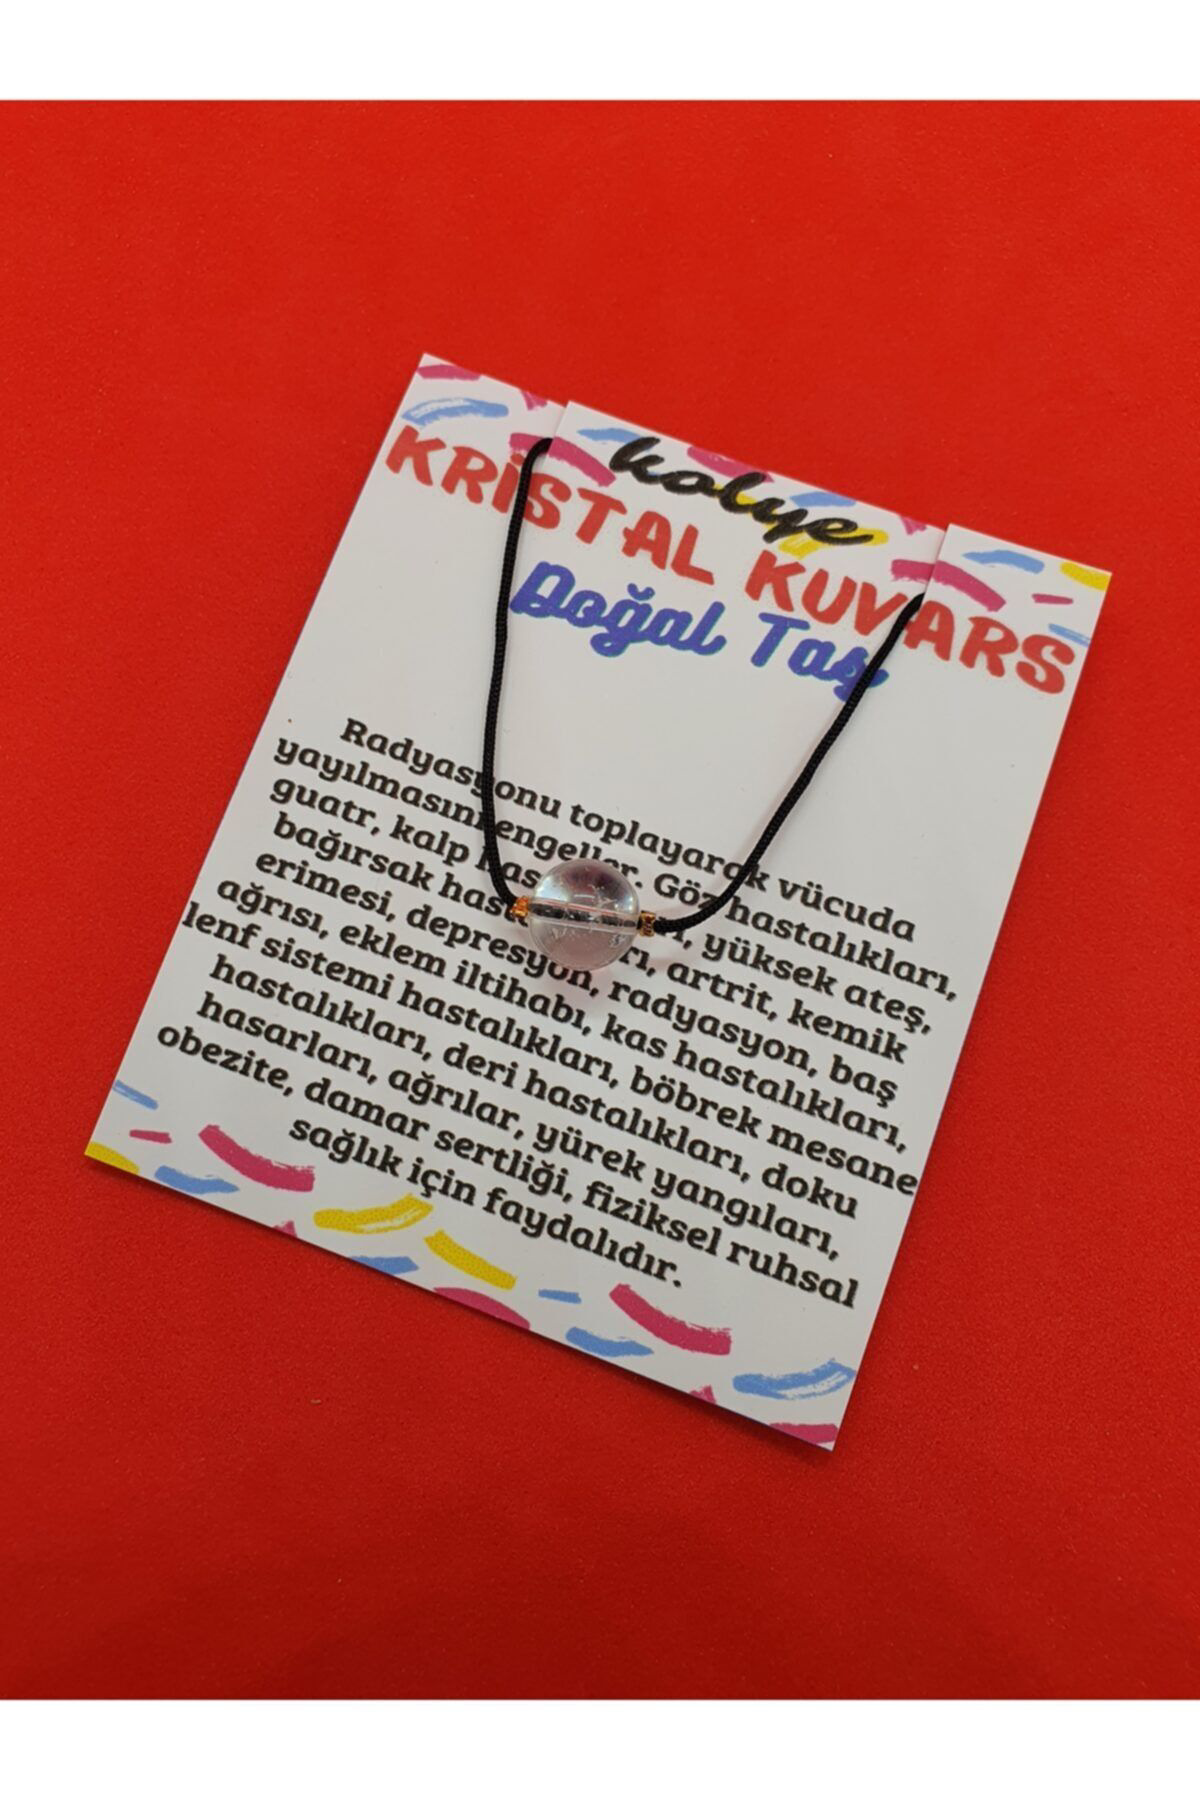 kolye
KRİSTAL KUVARS
Doğal Taş
Radyasyonu toplayarak vücuda
yayılmasını engeller. Göz hastalıkları,
guatr, kalp yüksek ateş,
bağırsak artrit, kemik
erimesi, depresyon, radyasyon, baş
ağrısı, eklem iltihabı, kas hastalıkları,
lenf sistemi hastalıkları, böbrek mesane
hastalıkları, deri hastalıkları, doku
hasarları, ağrılar, yürek yangıları,
obezite, damar sertliği, fiziksel ruhsal
sağlık için faydalıdır.